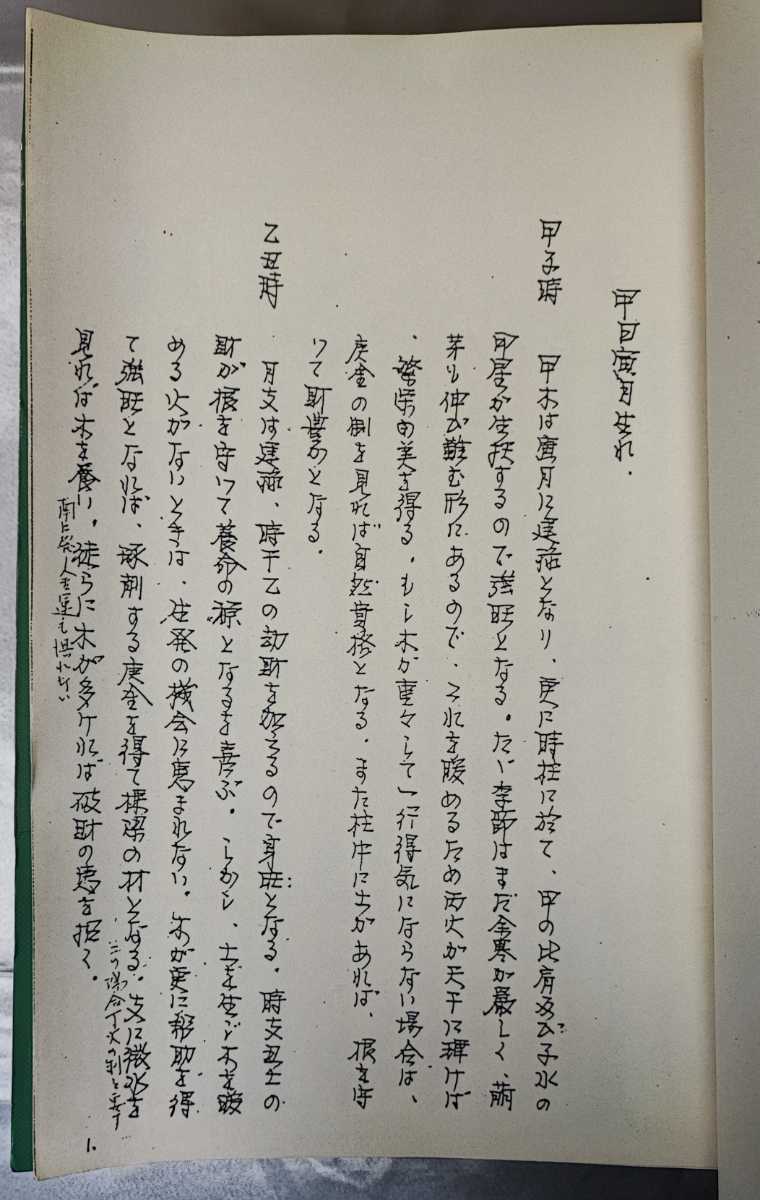 甲日寅月生れ．
甲子時　甲木は寅月に建禄となり、更に時柱に於て、甲の比肩及び子水の
印星が生扶するので強旺となる。たゞ季節はまだ余寒が厳しく、萌
芽も伸び難む形にあるので、それを暖めるため丙火が天干に輝けば
、繁栄の美を得る。もし木が重々して一行得気にならない場合は、
庚金の制を見れば自然貴格となる．また柱中に土があれば、根を守
って財豊かとなる．
乙丑時　月支は建禄、時干乙の劫財を加えるので身旺となる．時支丑土の
財が根を守って養命の源となるを喜ぶ．しかし、土を生じ木を暖
める火がないときは、生発の機会に恵まれない。木が更に幇助を得
て強旺となれば、琢削する庚金を得て棟梁の材となる．支に微水を
見れば木を養い。徒らに木が多ければ破財の患を招く。
この場合丁火の制を要す
南に
人
運も
れない
1.